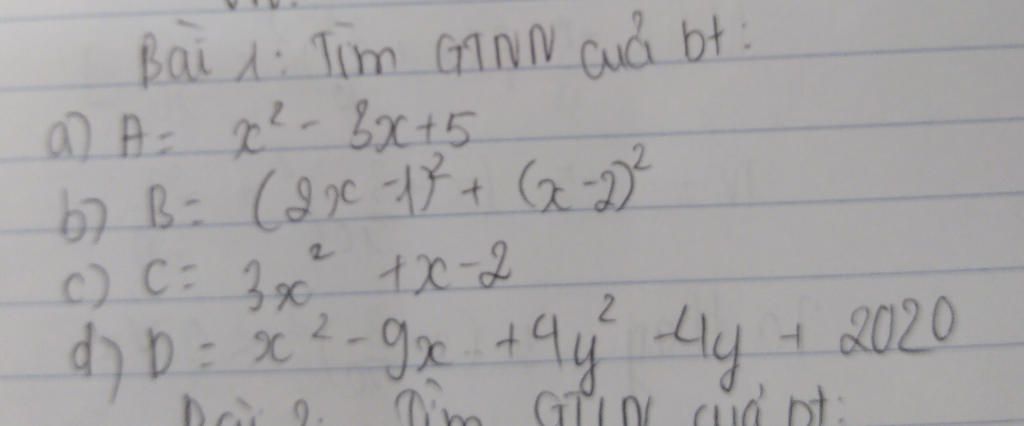 Bài 1: Tìm GTNN của bt:
a) A = x² - 3x + 5
b) B = (2x - 1)² + (x - 2)²
c) C = 3x² + x - 2
d) D = x² - 9x + 4y² - 4y + 2020
Bài 2: Tìm GTLN của bt: